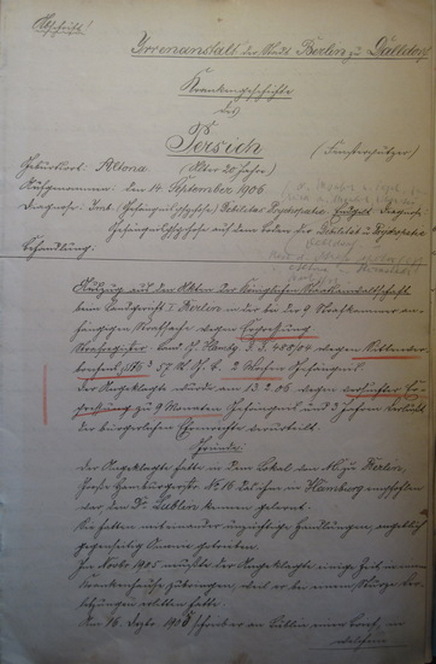 Abschrift!
Irrenanstalt der Stadt Berlin zu Dalldorf
Krankengeschichte
des
Persich (Fensterputzer)
Geburtsort: Altona. (Alter 20 Jahre)
Aufgenommen: den 14. September 1906.
Diagnose: Imb. (Gefängnispsychose) Debilitas Psychopathie. Endgilt. Diagnose:
Gefängnispsychose auf dem Boden der Debilität u. Psychopathie
Behandlung:
Auszug aus den Akten der Königlichen Staatsanwaltschaft
beim Landgericht I Berlin in der bei der 9 Strafkammer an-
hängigen Strafsache wegen Erpressung
Strafregister: laut J. Hambg. 488/04 wegen Sittenver-
brechens § 176³ St. G. B. 2 Wochen Gefängnis.
Der Angeklagte wurde am 13.2.06 wegen versuchter Er-
pressung zu 9 Monaten Gefängnis und 3 Jahren Verlust
der bürgerlichen Ehrenrechte verurteilt.
Gründe:
Der Angeklagte hatte in dem Lokal von zu Berlin,
Große Hamburgerstr. No 16 das ihm in Hamburg empfohlen
war den Dr. Lublin kennen gelernt.
Sie hatten miteinander unzüchtige Handlungen, angeblich
gegenseitig Onanie getrieben.
Im Novbr 1905 mußte der Angeklagte einige Zeit in einem
Krankenhause zubringen, weil er bei einem Sturze Ver-
letzungen erlitten hatte.
Am 16. Dezbr 1905 schrieb er an Lublin einen Brief, in
welchem